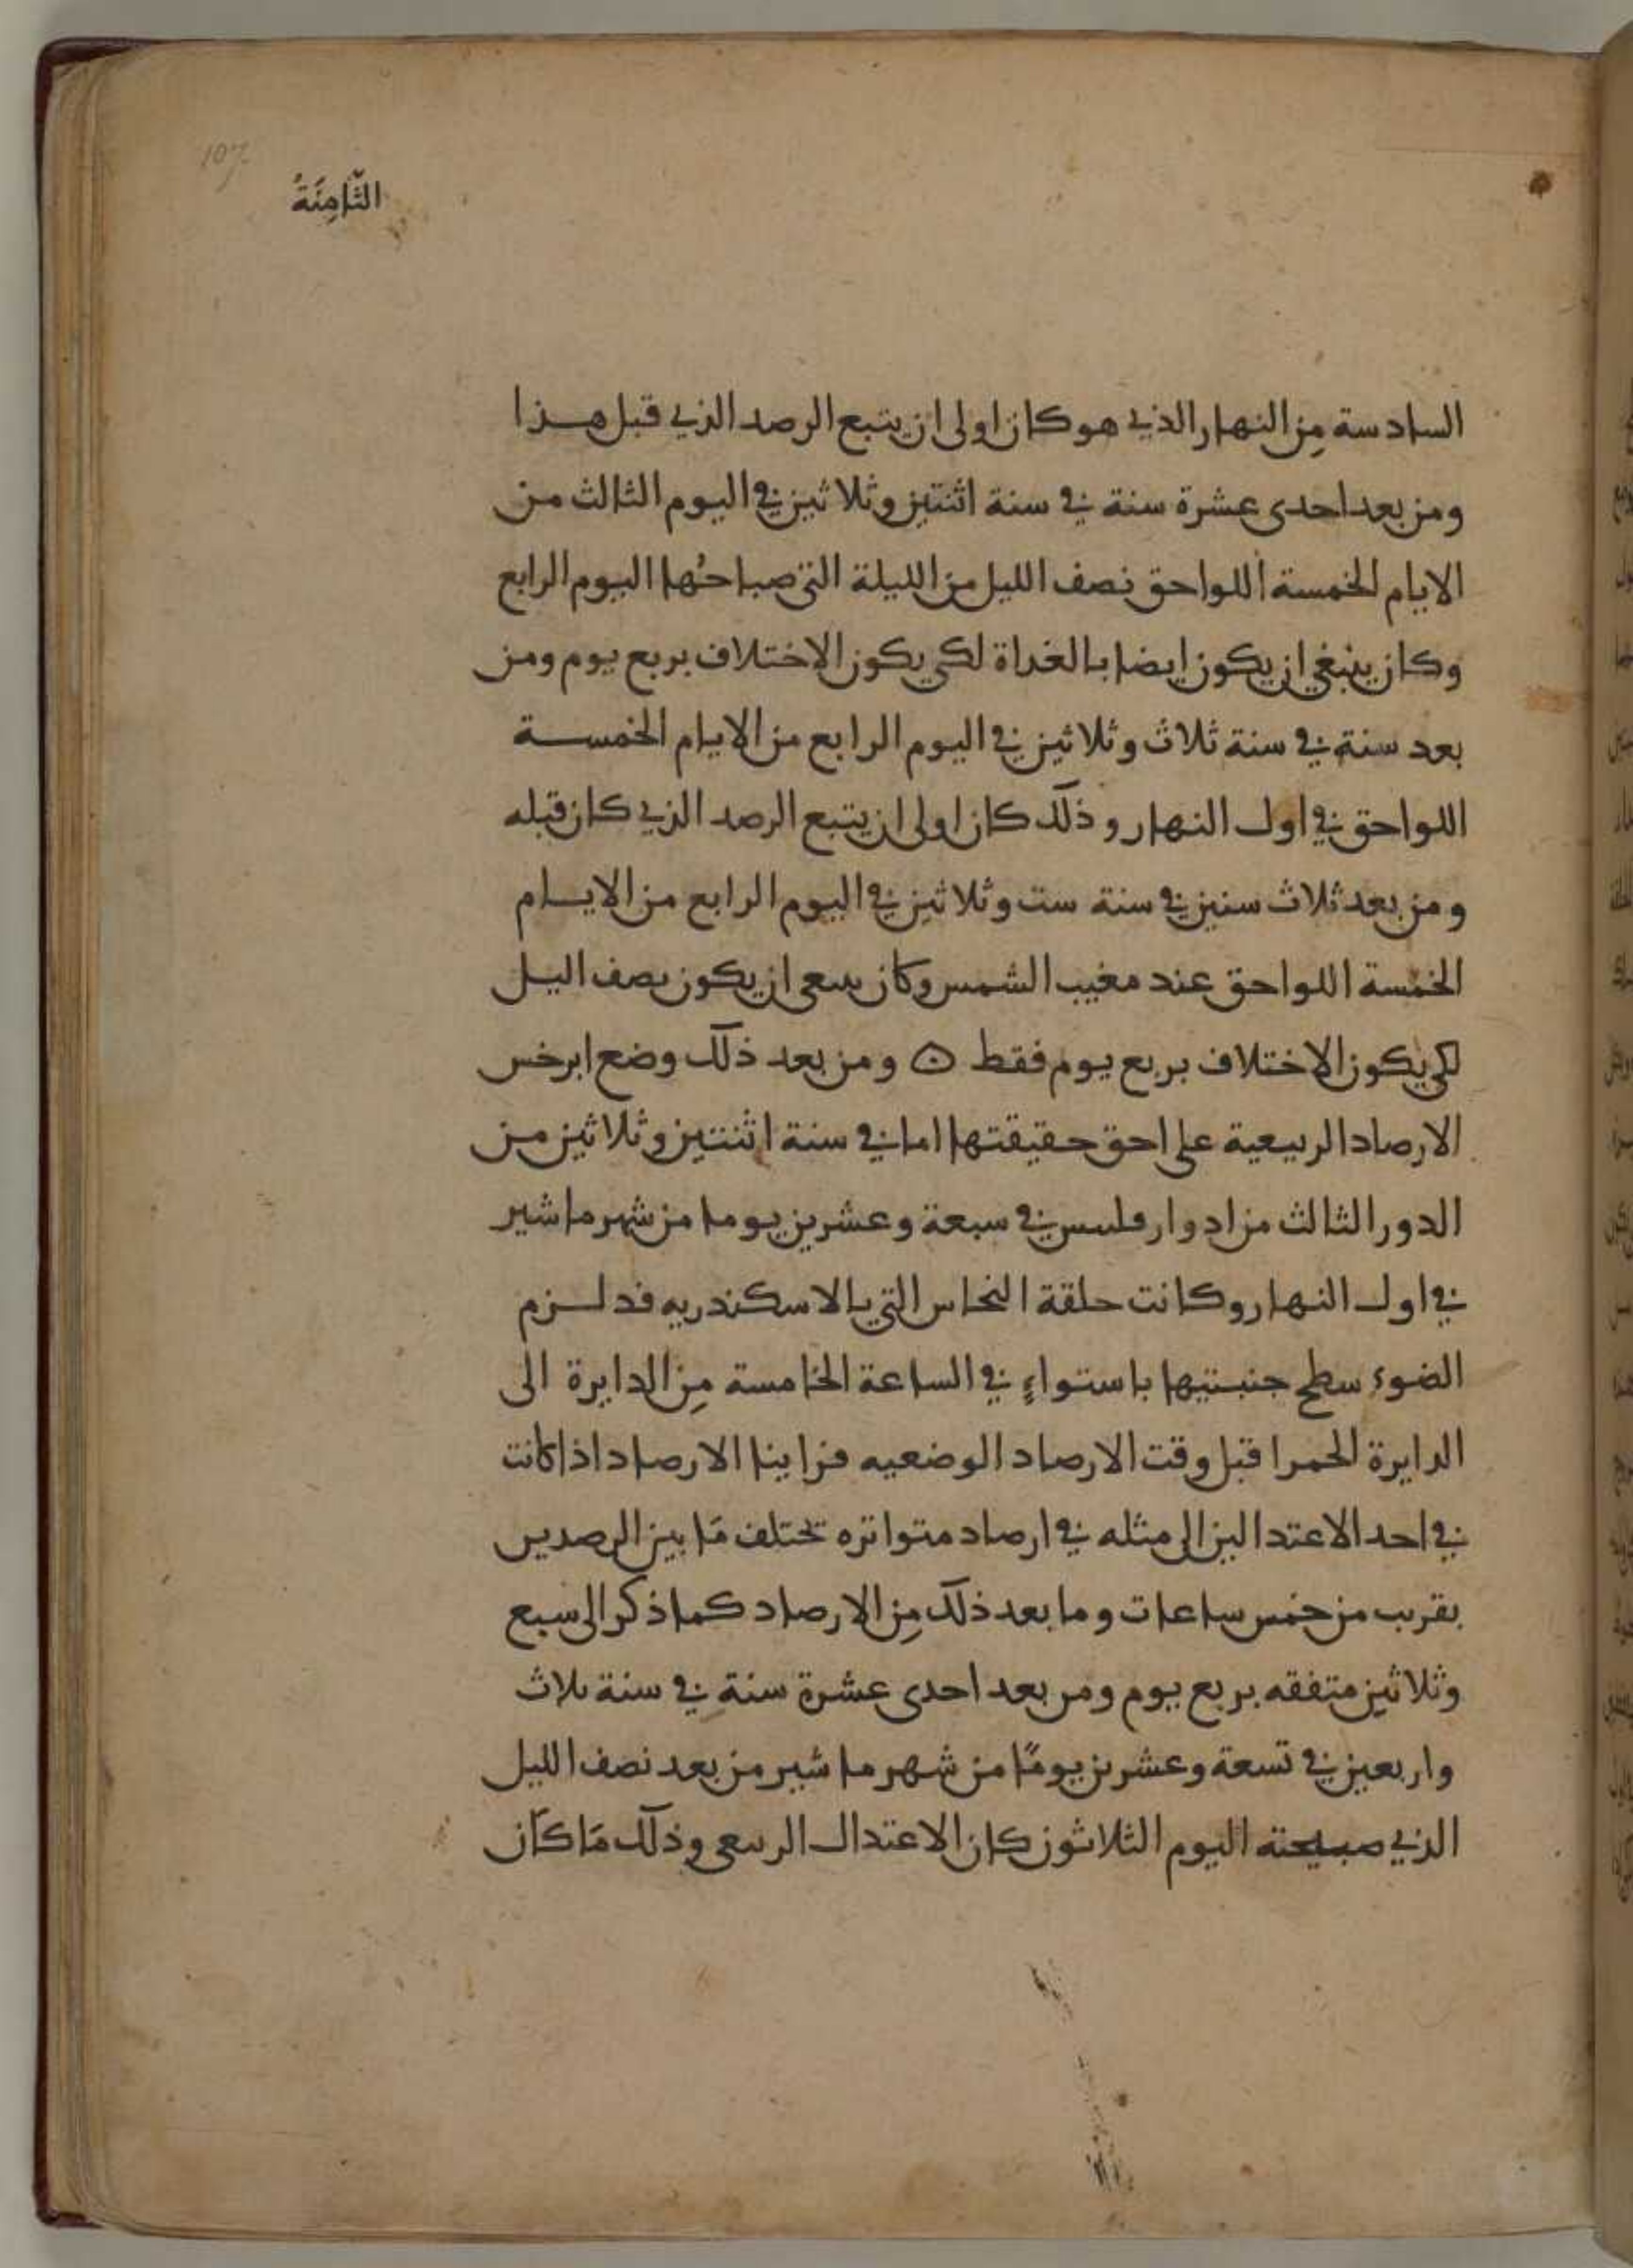 107
الثَّامِنَةُ
السادسة مِن النهار الذي هو كان اولى ان يتبع الرصد الذي قبل هذا
ومن بعد احدى عشرة سنة في سنة اثنتين وثلاثين في اليوم الثالث من
الايام الخمسة اللواحق نصف الليل من الليلة التي صباحُها اليوم الرابع
وكان ينبغي ان يكون ايضا بالغداة لكي يكون الاختلاف بربع يوم ومن
بعد سنة في سنة ثلاث وثلاثين في اليوم الرابع من الايام الخمسة
اللواحق في اول النهار وذلك كان اولى ان يتبع الرصد الذي كان قبله
ومن بعد ثلاث سنين في سنة ست وثلاثين في اليوم الرابع من الايام
الخمسة اللواحق عند مغيب الشمس وكان ينبغي ان يكون نصف اليل
لكي يكون الاختلاف بربع يوم فقط ومن بعد ذلك وضع ابرخس
الارصاد الربيعية على احق حقيقتها اما في سنة اثنتين وثلاثين من
الدور الثالث من ادوار فلبس في سبعة وعشرين يوما من شهر ماشير
في اول النهار وكانت حلقة النحاس التي بالاسكندريه قد لزم
الضوء سطح جنبتيها باستواءٍ في الساعة الخامسة مِن الدايرة الى
الدايرة الحمرا قبل وقت الارصاد الوضعيه فراينا الارصاد اذا كانت
في احد الاعتدالين الى مثله في ارصاد متواتره تختلف مَا بين الرصدين
بقرب من خمس ساعات وما بعد ذلك مِن الارصاد كما ذكر الى سبع
وثلاثين متفقه بربع يوم ومن بعد احدى عشرة سنة في سنة ثلاث
واربعين في تسعة وعشرين يومًا من شهر ماشير من بعد نصف الليل
الذي صبيحته اليوم الثلاثون كان الاعتدال الربيعي وذلك مَا كَان